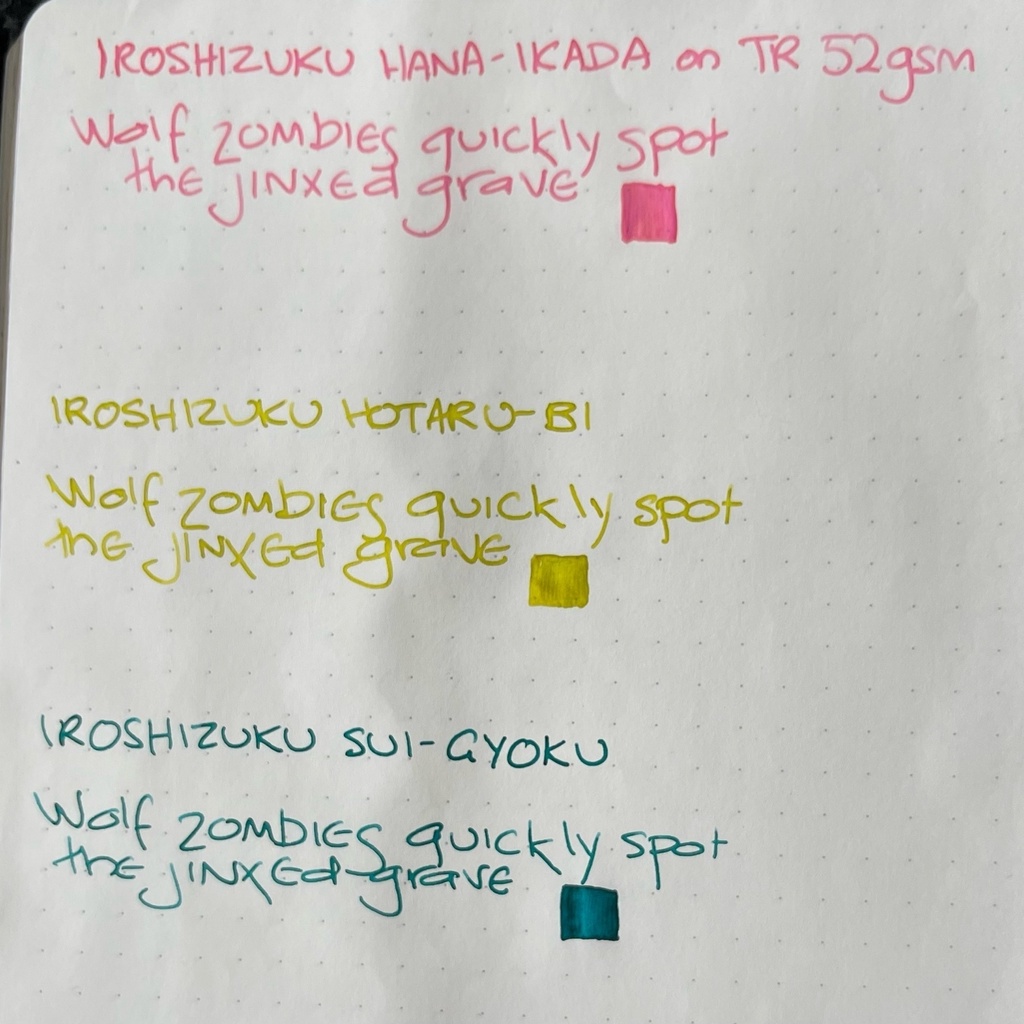 IROSHIZUKU HANA-IKADA on TR 52gsm
Wolf zombies quickly spot
the jinxed grave
IROSHIZUKU HOTARU-BI
Wolf zombies quickly spot
the jinxed grave
IROSHIZUKU SUI-GYOKU
Wolf zombies quickly spot
the jinxed grave